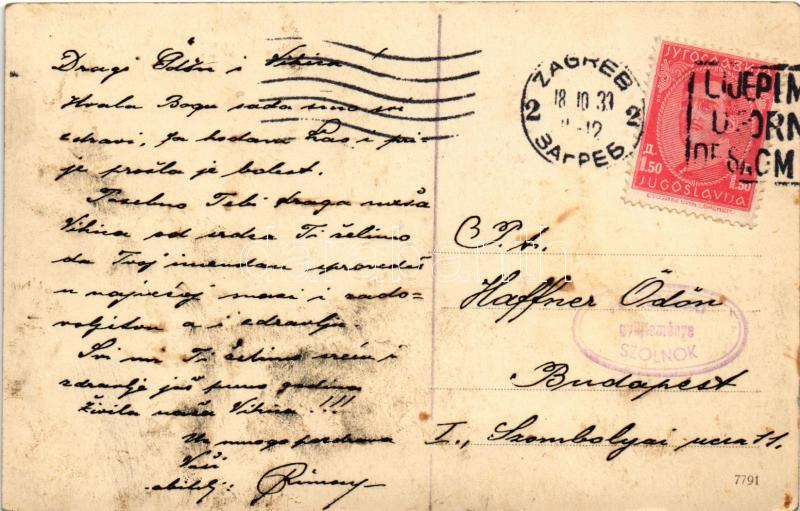 Dragi Ödön i Vikica
Hvala Bogu sada smo svi
zdravi, ja hodam kao i pri-
je prošla je bolest.
Posebno Tebi draga naša
Vikica od srdca Ti želimo
da Tvoj imendan sprovedeš
u najvećoj mazi i zado-
voljstvu a i zdravlju.
Svi mi Ti želimo sreću i
zdravlje još puno godina
živila naša Vikica!!!
Uz mnogo pozdrava
Vaši
obitelj:
ZAGREB
2 18 10 33 2
12
ЗАГРЕБ
ЈУГОСЛАВИЈА
Д. 1.50 1.50
JUGOSLAVIJA
LIJEPIM
P. t.
Haffner Ödön
gyűjteménye
SZOLNOK
Budapest
I., Szombolyai ucca 11.
7791
darabanth